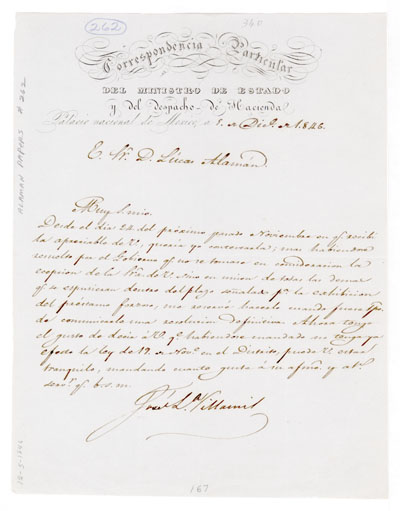 262
360
Correspondencia Particular
DEL MINISTRO DE ESTADO
y del despacho de Hacienda
Palacio nacional de Mexico a 5 de Dicᵉ de 1846.
E. Sr. D. Lucas Alamán
Muy S. mio.
Desde el dia 24 del próximo pasado Noviembre en qᵉ recibí
la apreciable de V., queria yo contestarla; mas habiendose
resuelto por el Gobierno qᵉ no se tomara en consideracion la
de V. sino en union de todas las demas
qᵉ se dentro del plazo señalado pᵃ la exhibicion
del préstamo forzoso, me reservé hacerlo cuando fuera
de comunicarle una resolucion definitiva. Ahora tengo
el gusto de decir á V. qᵉ habiendose mandado no tenga ya
efecto la ley de 19 de Novᵉ en el Distrito, puede V. estar
tranquilo, mandando cuanto guste á su afmo. y atº
servʳ. qᵉ b. s. m.
José L. Villamil
ALAMAN PAPERS # 262
12-5-1846
167